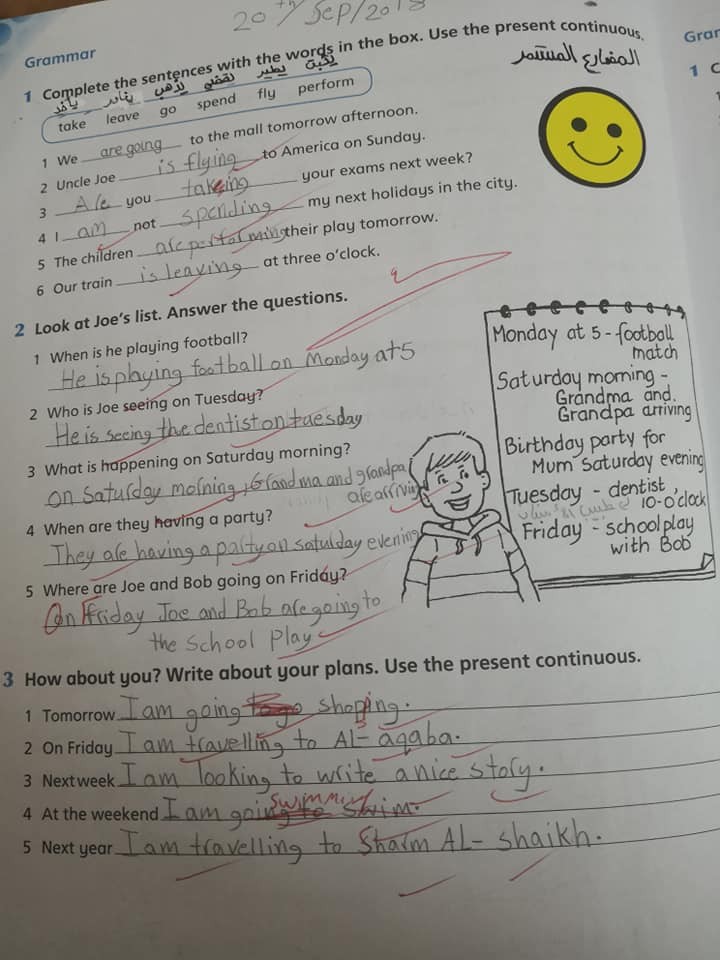 20th / Sep / 2018
Grammar
1 Complete the sentences with the words in the box. Use the present continuous.
المضارع المستمر
يأخذ يغادر يذهب يقضي يطير
take leave go spend fly perform
1 We are going to the mall tomorrow afternoon.
2 Uncle Joe is flying to America on Sunday.
3 Are you taking your exams next week?
4 I am not spending my next holidays in the city.
5 The children are performing their play tomorrow.
6 Our train is leaving at three o'clock.
2 Look at Joe's list. Answer the questions.
1 When is he playing football?
He is playing football on Monday at 5
2 Who is Joe seeing on Tuesday?
He is seeing the dentist on tuesday
3 What is happening on Saturday morning?
on Saturday morning, Grandma and grandpa
are arriving
4 When are they having a party?
They are having a party on saturday evening
5 Where are Joe and Bob going on Friday?
On Friday Joe and Bob are going to
the School Play
Monday at 5 - football
match
Saturday morning -
Grandma and
Grandpa arriving
Birthday party for
Mum Saturday evening
Tuesday - dentist,
10-o'clock
Friday - school play
with Bob
3 How about you? Write about your plans. Use the present continuous.
1 Tomorrow I am going shopping.
2 On Friday I am travelling to AL- aqaba.
3 Next week I am looking to write a nice story.
swimming
4 At the weekend I am going to swim.
5 Next year I am travelling to Sharm AL- shaikh.
Gra
1 C